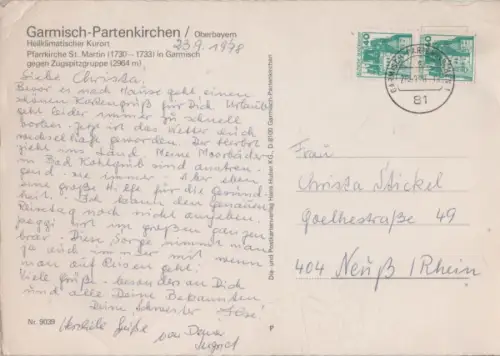 Garmisch-Partenkirchen / Oberbayern
Heilklimatischer Kurort
23.9.1978
Pfarrkirche St. Martin (1730 – 1733) in Garmisch
gegen Zugspitzgruppe (2964 m)
Liebe Christa,
Bevor es nach Hause geht einen
schönen Kurlaubsgruß für Dich. Urlaub
geht leider immer zu schnell
vorbei. Jetzt ist das Wetter auch
wechselhaft geworden. Der Herbst
zieht ins Land. Meine Moorbäder
in Bad Kohlgrub sind anstren-
gend, wie immer. Aber eben
eine große Hilfe für die Gesund-
heit. Ich kann den genauen
Reisetag noch nicht angeben.
Peggi ist im großen ganzen
brav. Diese Sorge nimmt man
ja auch immer mit wenn
man auf Reisen geht.
Viele Grüße besonders an Dich
und alle Deine Bekannten
Deine Schwester
Herzliche Grüße
von Deiner
Nr. 9039
P
Die- und Postkartenverlag Hans Huber KG., D 8100 Garmisch-Partenkirchen
81
Frau
Christa Stickel
Goethestraße 49
404 Neuß/Rhein